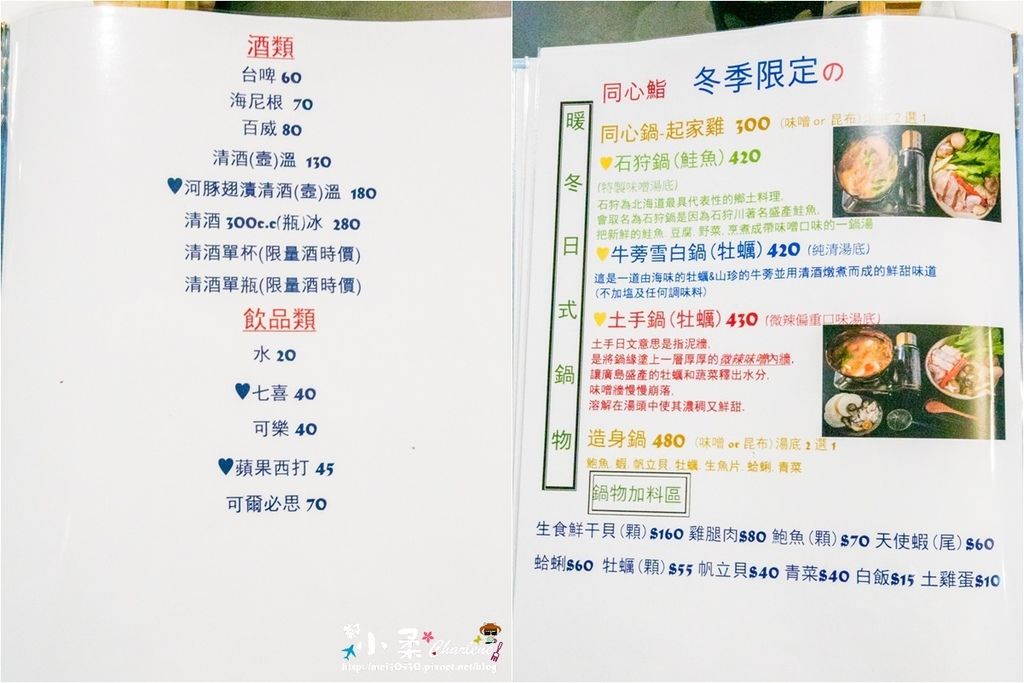 酒類
台啤 60
海尼根 70
百威 80
清酒(壺)溫 130
♥河豚翅漬清酒(壺)溫 180
清酒 300c.c(瓶)冰 280
清酒單杯(限量酒時價)
清酒單瓶(限量酒時價)
飲品類
水 20
♥七喜 40
可樂 40
♥蘋果西打 45
可爾必思 70
小柔 Charlene
同心鮨 冬季限定の
暖冬日式鍋物
同心鍋-起家雞 300 (味噌 or 昆布)湯底 2 選 1
♥石狩鍋(鮭魚) 420
(特製味噌湯底)
石狩為北海道最具代表性的鄉土料理,
會取名為石狩鍋是因為石狩川著名盛產鮭魚,
把新鮮的鮭魚.豆腐.野菜.烹煮成帶味噌口味的一鍋湯
♥牛蒡雪白鍋(牡蠣) 420 (純清湯底)
這是一道由海味的牡蠣&山珍的牛蒡並用清酒燉煮而成的鮮甜味道
(不加塩及任何調味料)
♥土手鍋(牡蠣) 430 (微辣偏重口味湯底)
土手日文意思是指泥牆,
是將鍋緣塗上一層厚厚的微辣味噌內牆,
讓廣島盛產的牡蠣和蔬菜釋出水分,
味噌牆慢慢崩落,
溶解在湯頭中使其濃稠又鮮甜.
造身鍋 480 (味噌 or 昆布)湯底 2 選 1
鮑魚.蝦.帆立貝.牡蠣.生魚片.蛤蜊.青菜
鍋物加料區
生食鮮干貝(顆)$160 雞腿肉$80 鮑魚(顆)$70 天使蝦(尾)$60
蛤蜊$60 牡蠣(顆)$55 帆立貝$40 青菜$40 白飯$15 土雞蛋$10